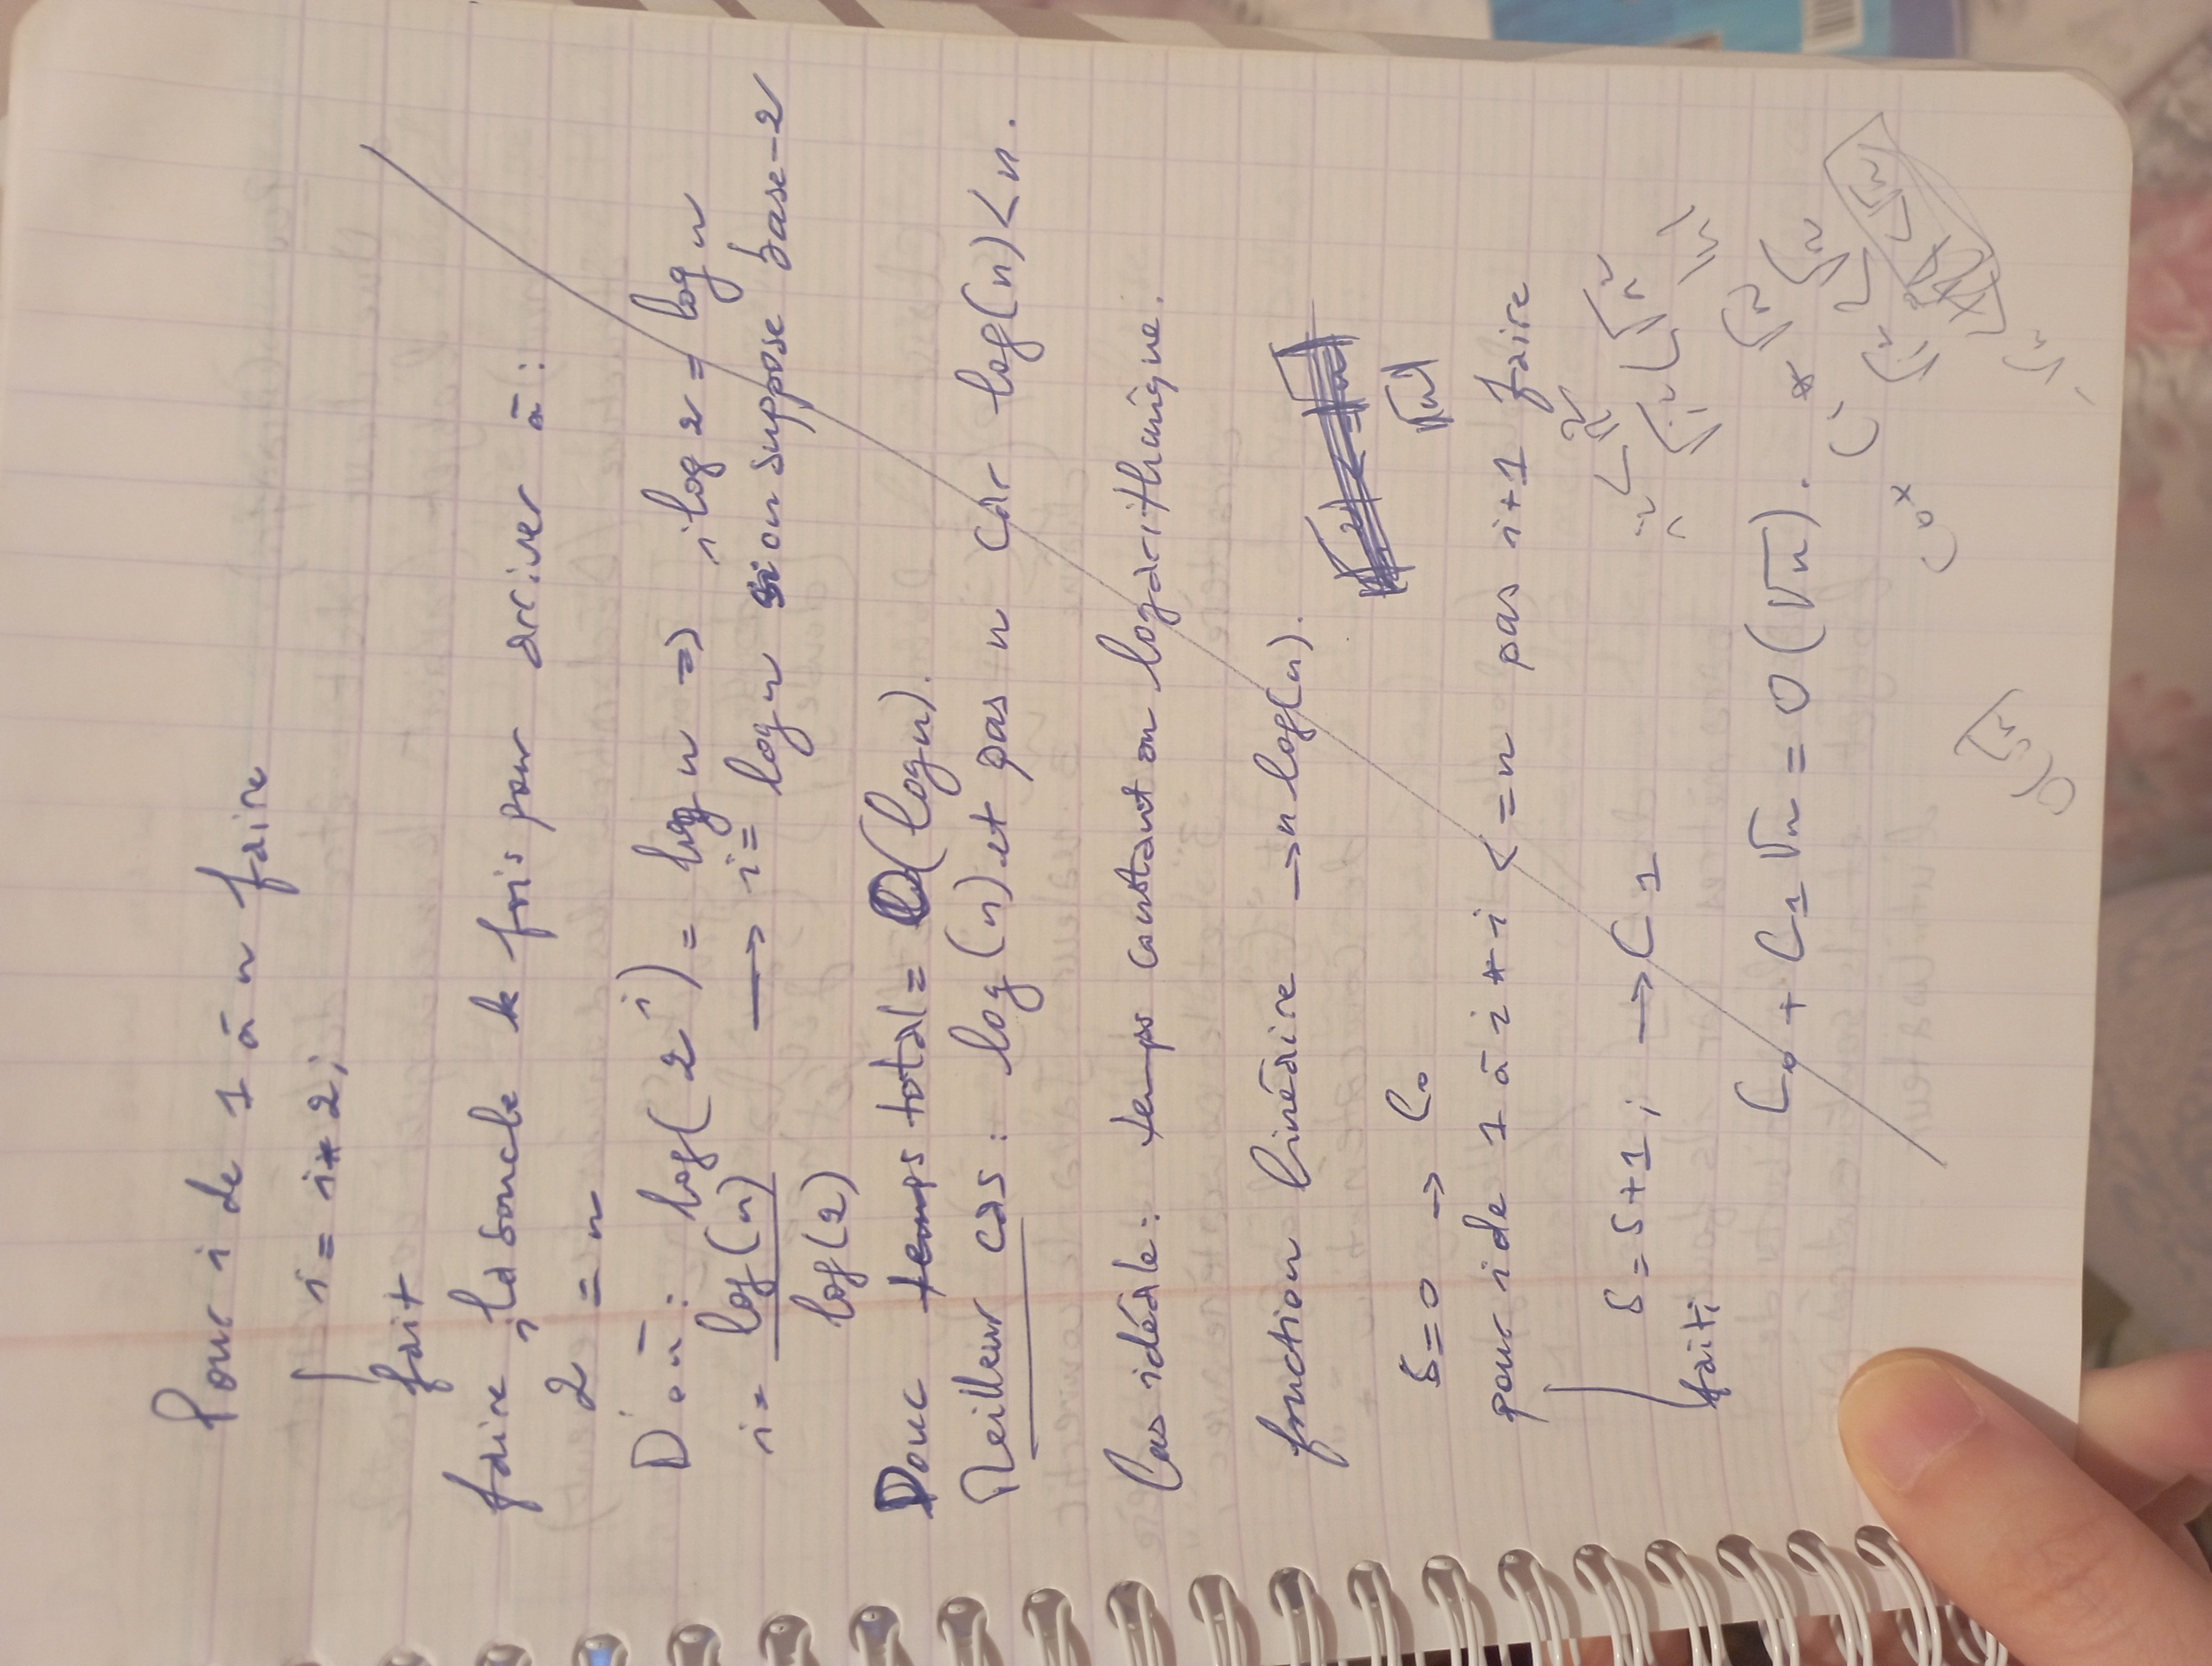 Pour i de 1 à n faire
i = i * 2;
fait
faire la boucle k fois pour arriver à :
2^i = n
D'où : log(2^i) = log n => i log 2 = log n
i = log(n) / log(2) → i = log n si on suppose base-2
Donc temps total = O(log n).
Meilleur cas : log(n) et pas n car log(n) < n.
Cas idéale : temps constant ou logarithmique.
fonction linéaire → n log(n).
√n
S = 0 → C₀
pour i de 1 à i * i <= n pas i+1 faire
S = S + 1 ; → C₁
fait;
C₀ + C₁ √n = O(√n).
i² < n²
√i² < √n²
C₀ + C₁ * √n
√i² < √n
< √n
O(√n)